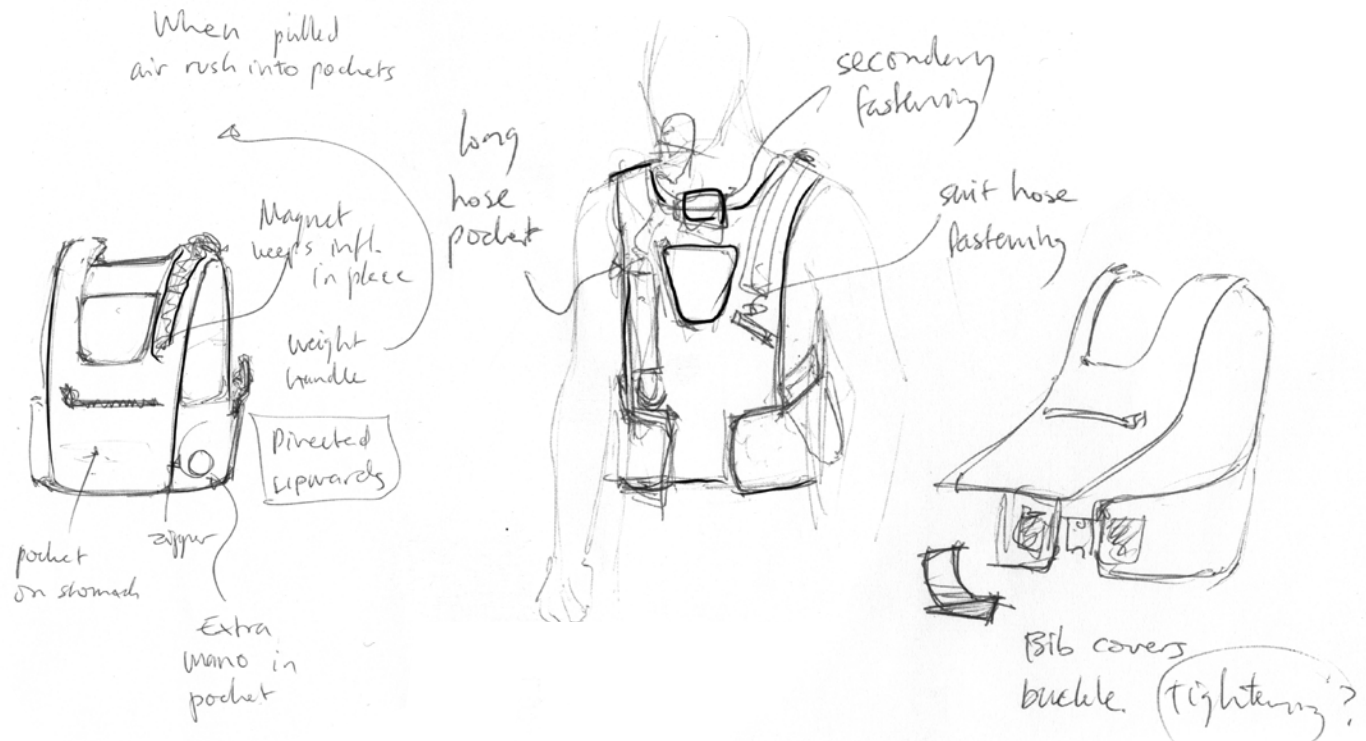 When pulled
air rush into pockets
Magnet
keeps infl.
in place
weight
handle
Directed
upwards
pocket
on stomach
zipper
Extra
mano in
pocket
long
hose
pocket
secondary
fastening
suit hose
fastening
Bib covers
buckle
tightening?